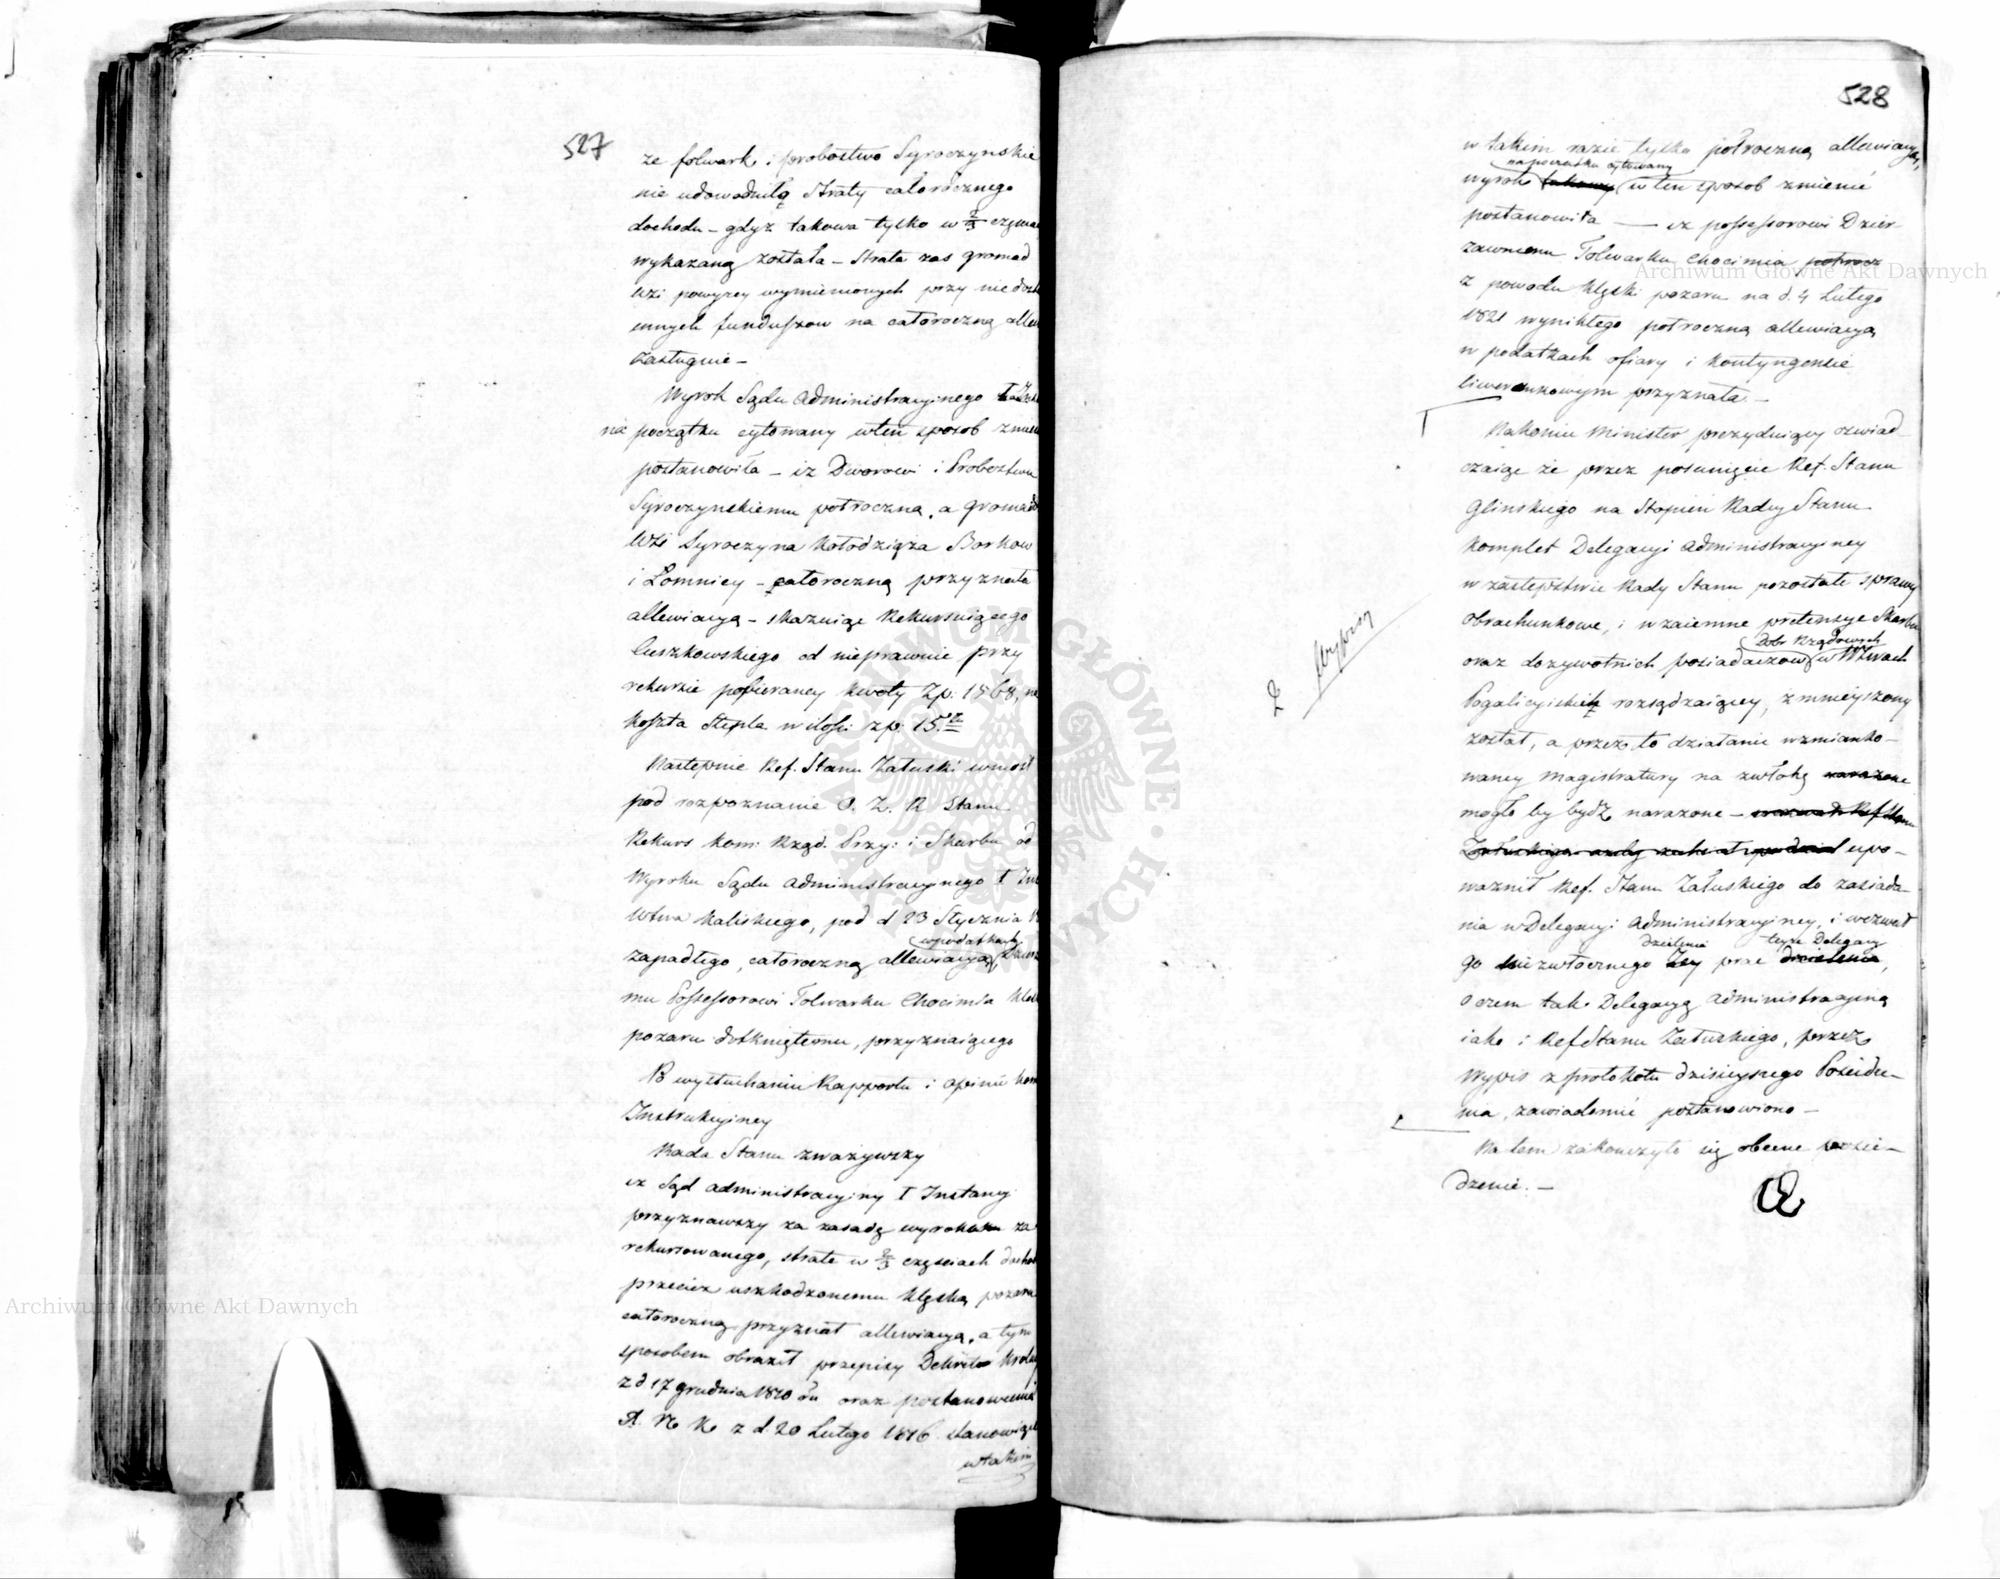 527
ze folwark i probostwo Syroczynskie
nie udowodniło straty całorocznego
dochodu – gdyż takowa tylko w 2/3
wykazaną została – strata zas gromad
Wsi powyżey wymienionych przy
innych funduszow na całoroczną
zasługuie –
Wyrok Sądu Administracyinego
na początku cytowany wten sposob
postanowiła – iz Dworowi i Probostwu
Syroczynskiemu połroczną, a gromad
Wsi Syroczyna Kołodziąża Borkow
i Łomnicy – całoroczną przyznała
allewiacyą – skazuiąc Rekursuiącego
Cuszkowskiego od nieprawnie przy
rekursie pobieraney kwoty Zp: 1568, na
koszta Stępla w ilosci zp. 15.
Następnie Ref. Stanu Załuski wniosł
pod rozpoznanie O. Z. R Stanu
Rekurs Kom: Rząd. Przy: i Skarbu od
Wyroku Sądu Administracyinego I
Wtwa Kaliskiego, pod d 23 Stycznia
w podatkach
zapadłego, całoroczną allewiacyą
mu Possessorowi Folwarku Chocimia
pozaru dotkniętemu, przyznaiącego
Po wysłuchaniu Rapportu i opinii
Instrukcyiney
Rada Stanu zważywszy
iz Sąd administracyiny I Instancyi
przyznawszy za zasadę wyroku za
rekursowanego, stratę w 2/3 częsciach
przeciez uszkodzonemu klęską pozaru
całoroczną przyznał allewiacyą, a tym
sposobem obraził przepisy Dekretu
z d 17 grudnia 1810 ru oraz postanowienia
z d 20 Lutego 1816 stanowiące
w takim
Archiwum Główne Akt Dawnych
528
w takim razie tylko połroczną allewiacyą,
na początku cytowany
wyrok w ten sposob zmienić
postanowiła — iz possessorowi Dzier-
zawnemu Folwarku Chocimia połrocz
z powodu klęski pozaru na d. 4 Lutego
1821 wynikłego połroczną allewiacyą
w podatkach ofiary i kontyngensie
liwerunkowym przyznała. –
Nakoniec Minister prezyduiący oswiad-
czaiąc że przez posunięcie Ref. Stanu
Glinskiego na Stopień Radcy Stanu
Komplet Delegacyi Administracyiney
w zastępstwie Rady Stanu pozostałe sprawy
obrachunkowe, i wzaiemne pretensye Skarbu
Dobr Rządowych
oraz dozywotnich posiadaczow w Wtwach
Pogalicyiskich rozsądzaiącey, zmnieyszony
został, a przez to działanie wzmianko-
waney Magistratury na zwłokę narazone
mogło by bydź narazone – wezwał Ref Stanu
Załuskiego upo-
waznił Ref. Stanu Załuskiego do zasiada-
nia w Delegacyi Administracyiney, i wezwał
dzielenia teyze Delegacyi
go niezwłocznego prac dzielenia,
o czem tak Delegacyą Administracyiną
iako i Ref Stanu Załuskiego, przez
Wypis z protokołu dzisieyszego Posiedze-
nia, zawiadomić postanowiono –
Na tem zakonczyło się obecne posie-
dzenie. –
Wypisy
Archiwum Główne Akt Dawnych
ARCHIWUM GŁÓWNE AKT DAWNYCH